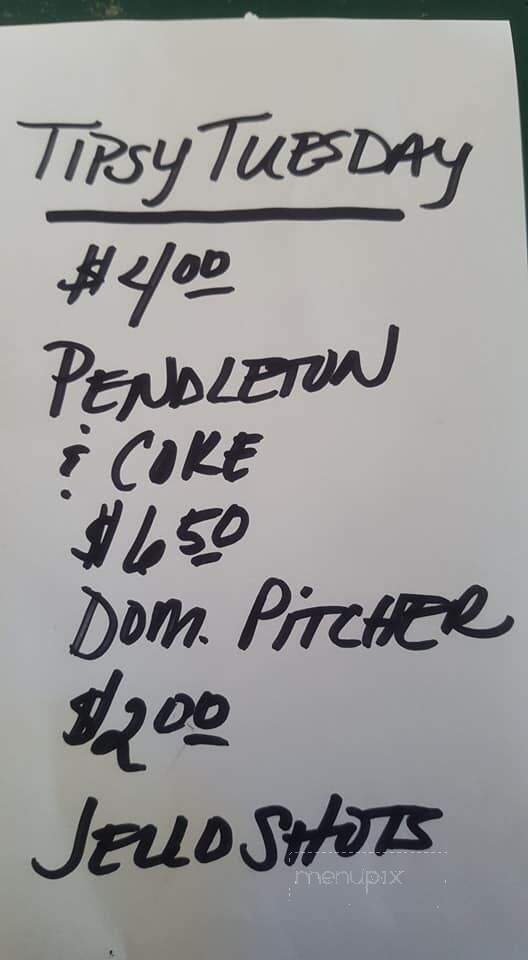 TIPSY TUESDAY
$4.00
PENDLETON
& COKE
$6.50
DOM. PITCHER
$2.00
JELLO SHOTS
menupix